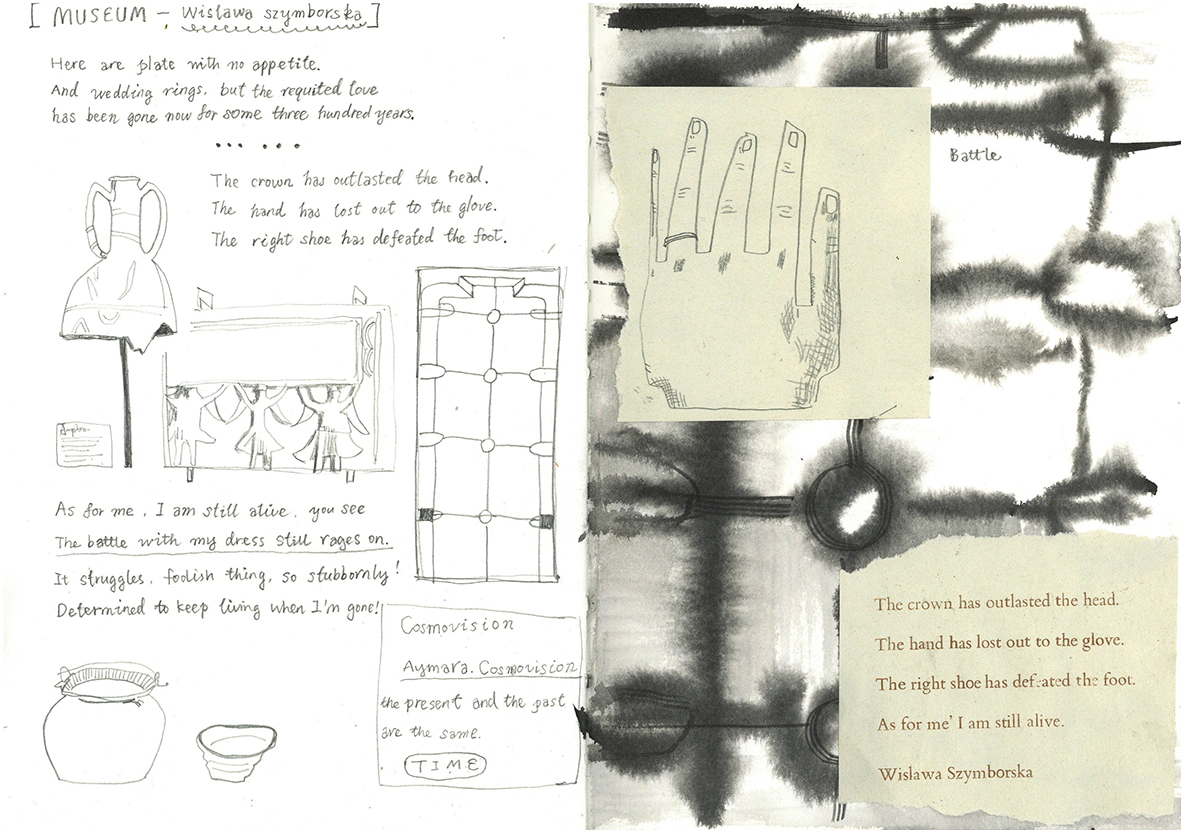 [ MUSEUM – Wisława szymborska ]
Here are plate with no appetite.
And wedding rings, but the requited love
has been gone now for some three hundred years.
••• •••
The crown has outlasted the head.
The hand has lost out to the glove.
The right shoe has defeated the foot.
As for me, I am still alive, you see
The battle with my dress still rages on.
It struggles, foolish thing, so stubbornly!
Determined to keep living when I'm gone!
Cosmovision
Aymara. Cosmovision
the present and the past
are the same.
TIME
Battle
The crown has outlasted the head.
The hand has lost out to the glove.
The right shoe has defeated the foot.
As for me’ I am still alive.
Wisława Szymborska